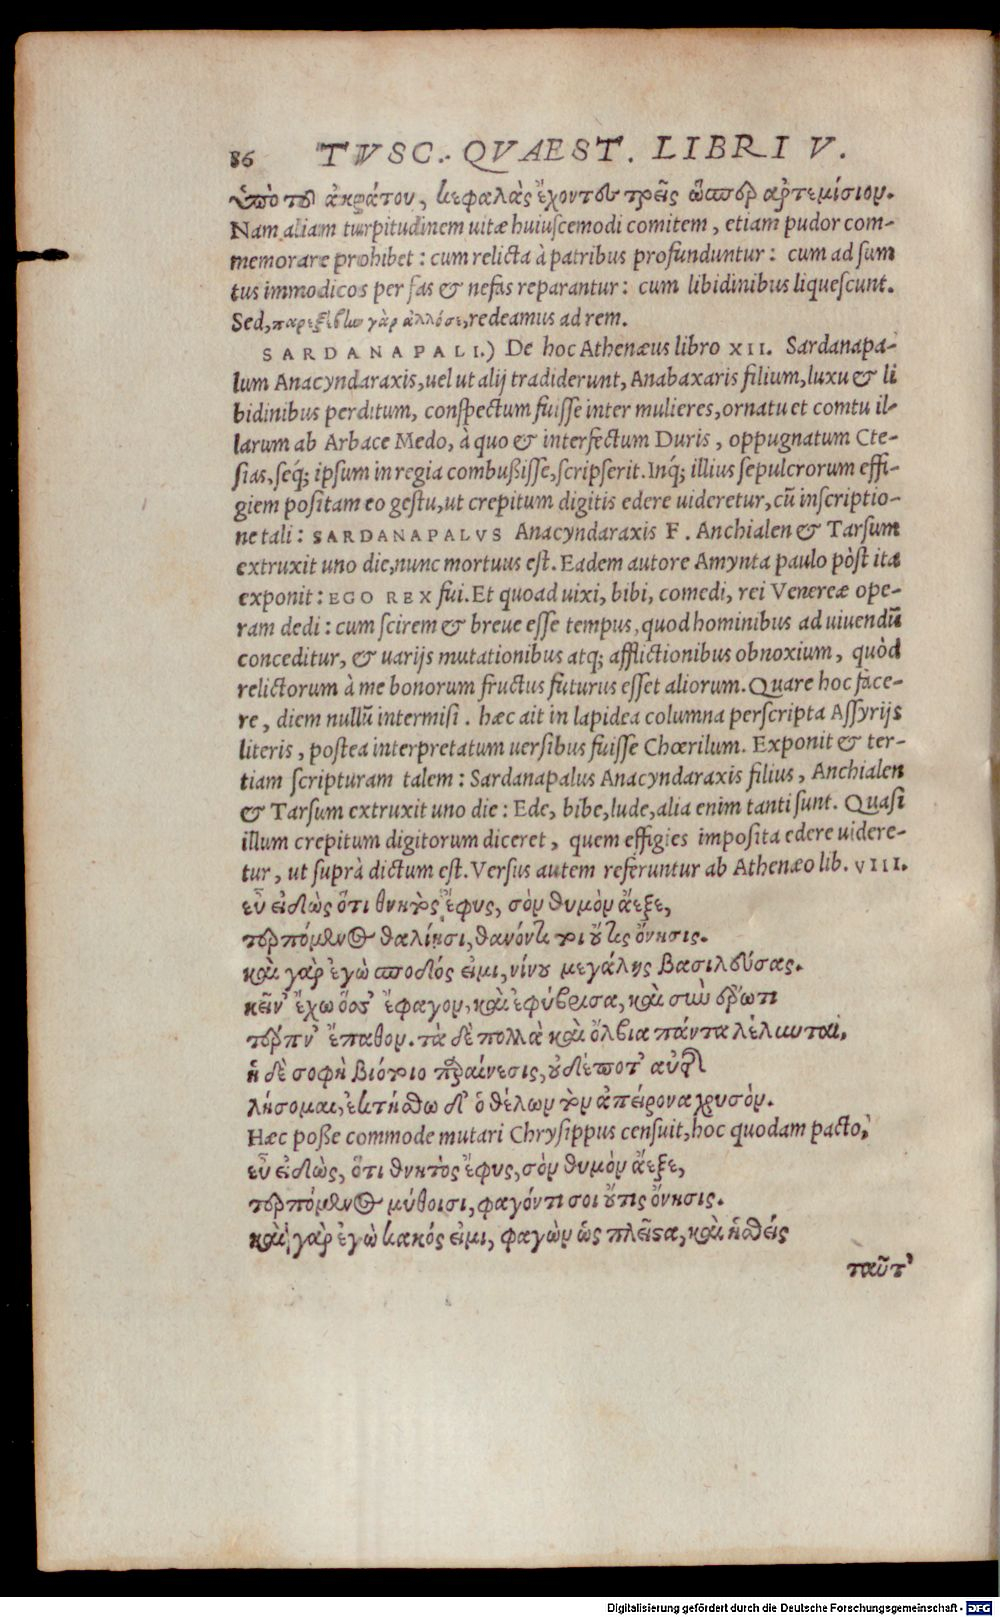 86 TVSC. QVAEST. LIBRI V.
ὑπὸ τοῦ ἀκράτου, κεφαλὰς ἔχοντες τρεῖς ὥσπερ ἀρτεμίσιον.
Nam aliam turpitudinem uitæ huiuscemodi comitem, etiam pudor com-
memorare prohibet: cum relicta à patribus profunduntur: cum ad sum
tus immodicos per fas & nefas reparantur: cum libidinibus liquescunt.
Sed, γὰρ ἀλλόσε, redeamus ad rem.
SARDANAPALI.) De hoc Athenæus libro XII. Sardanapa-
lum Anacyndaraxis, uel ut alij tradiderunt, Anabaxaris filium, luxu & li
bidinibus perditum, conspectum fuisse inter mulieres, ornatu et comtu il-
larum ab Arbace Medo, à quo & interfectum Duris, oppugnatum Cte-
sias, seq́; ipsum in regia combußisse, scripserit. Inq́; illius sepulcrorum effi-
giem positam eo gestu, ut crepitum digitis edere uideretur, cū inscriptio-
ne tali: SARDANAPALVS Anacyndaraxis F. Anchialen & Tarsum
extruxit uno die, nunc mortuus est. Eadem autore Amynta paulo pòst ita
exponit: EGO REX fui. Et quoad uixi, bibi, comedi, rei Venereæ ope-
ram dedi: cum scirem & breue esse tempus, quod hominibus ad uiuendū
conceditur, & uarijs mutationibus atq; afflictionibus obnoxium, quòd
relictorum à me bonorum fructus futurus esset aliorum. Quare hoc face-
re, diem nullū intermisi. hæc ait in lapidea columna perscripta Assyrijs
literis, postea interpretatum uersibus fuisse Chœrilum. Exponit & ter-
tiam scripturam talem: Sardanapalus Anacyndaraxis filius, Anchialen
& Tarsum extruxit uno die: Ede, bibe, lude, alia enim tanti sunt. Quasi
illum crepitum digitorum diceret, quem effigies imposita edere uidere-
tur, ut suprà dictum est. Versus autem referuntur ab Athenæo lib. VIII.
εὖ εἰδὼς ὅτι θνητὸς ἔφυς, σὸν θυμὸν ἄεξε,
τερπόμενος θαλίῃσι, θανόντι τοι οὔτις ὄνησις.
καὶ γὰρ ἐγὼ σποδός εἰμι, νίνου μεγάλης βασιλεύσας.
κεῖν' ἔχω ὅσσ' ἔφαγον, καὶ ἐφύβρισα, καὶ σὺν ἔρωτι
τέρπν' ἔπαθον. τὰ δὲ πολλὰ καὶ ὄλβια πάντα λέλυνται,
ἡ δὲ σοφὴ βιότοιο παραίνεσις, οὐδέποτ' αὐτῆς
λήσομαι, ἐκτήσθω δ' ὁ θέλων τὸν ἀπείρονα χρυσόν.
Hæc poße commode mutari Chrysippus censuit, hoc quodam pacto,
εὖ εἰδὼς, ὅτι θνητὸς ἔφυς, σὸν θυμὸν ἄεξε,
τερπόμενος μύθοισι, φαγόντι σοι οὔτις ὄνησις.
καὶ γὰρ ἐγὼ κακός εἰμι, φαγὼν ὡς πλεῖστα, καὶ ἡσθείς
ταῦτ'
Digitalisierung gefördert durch die Deutsche Forschungsgemeinschaft - DFG